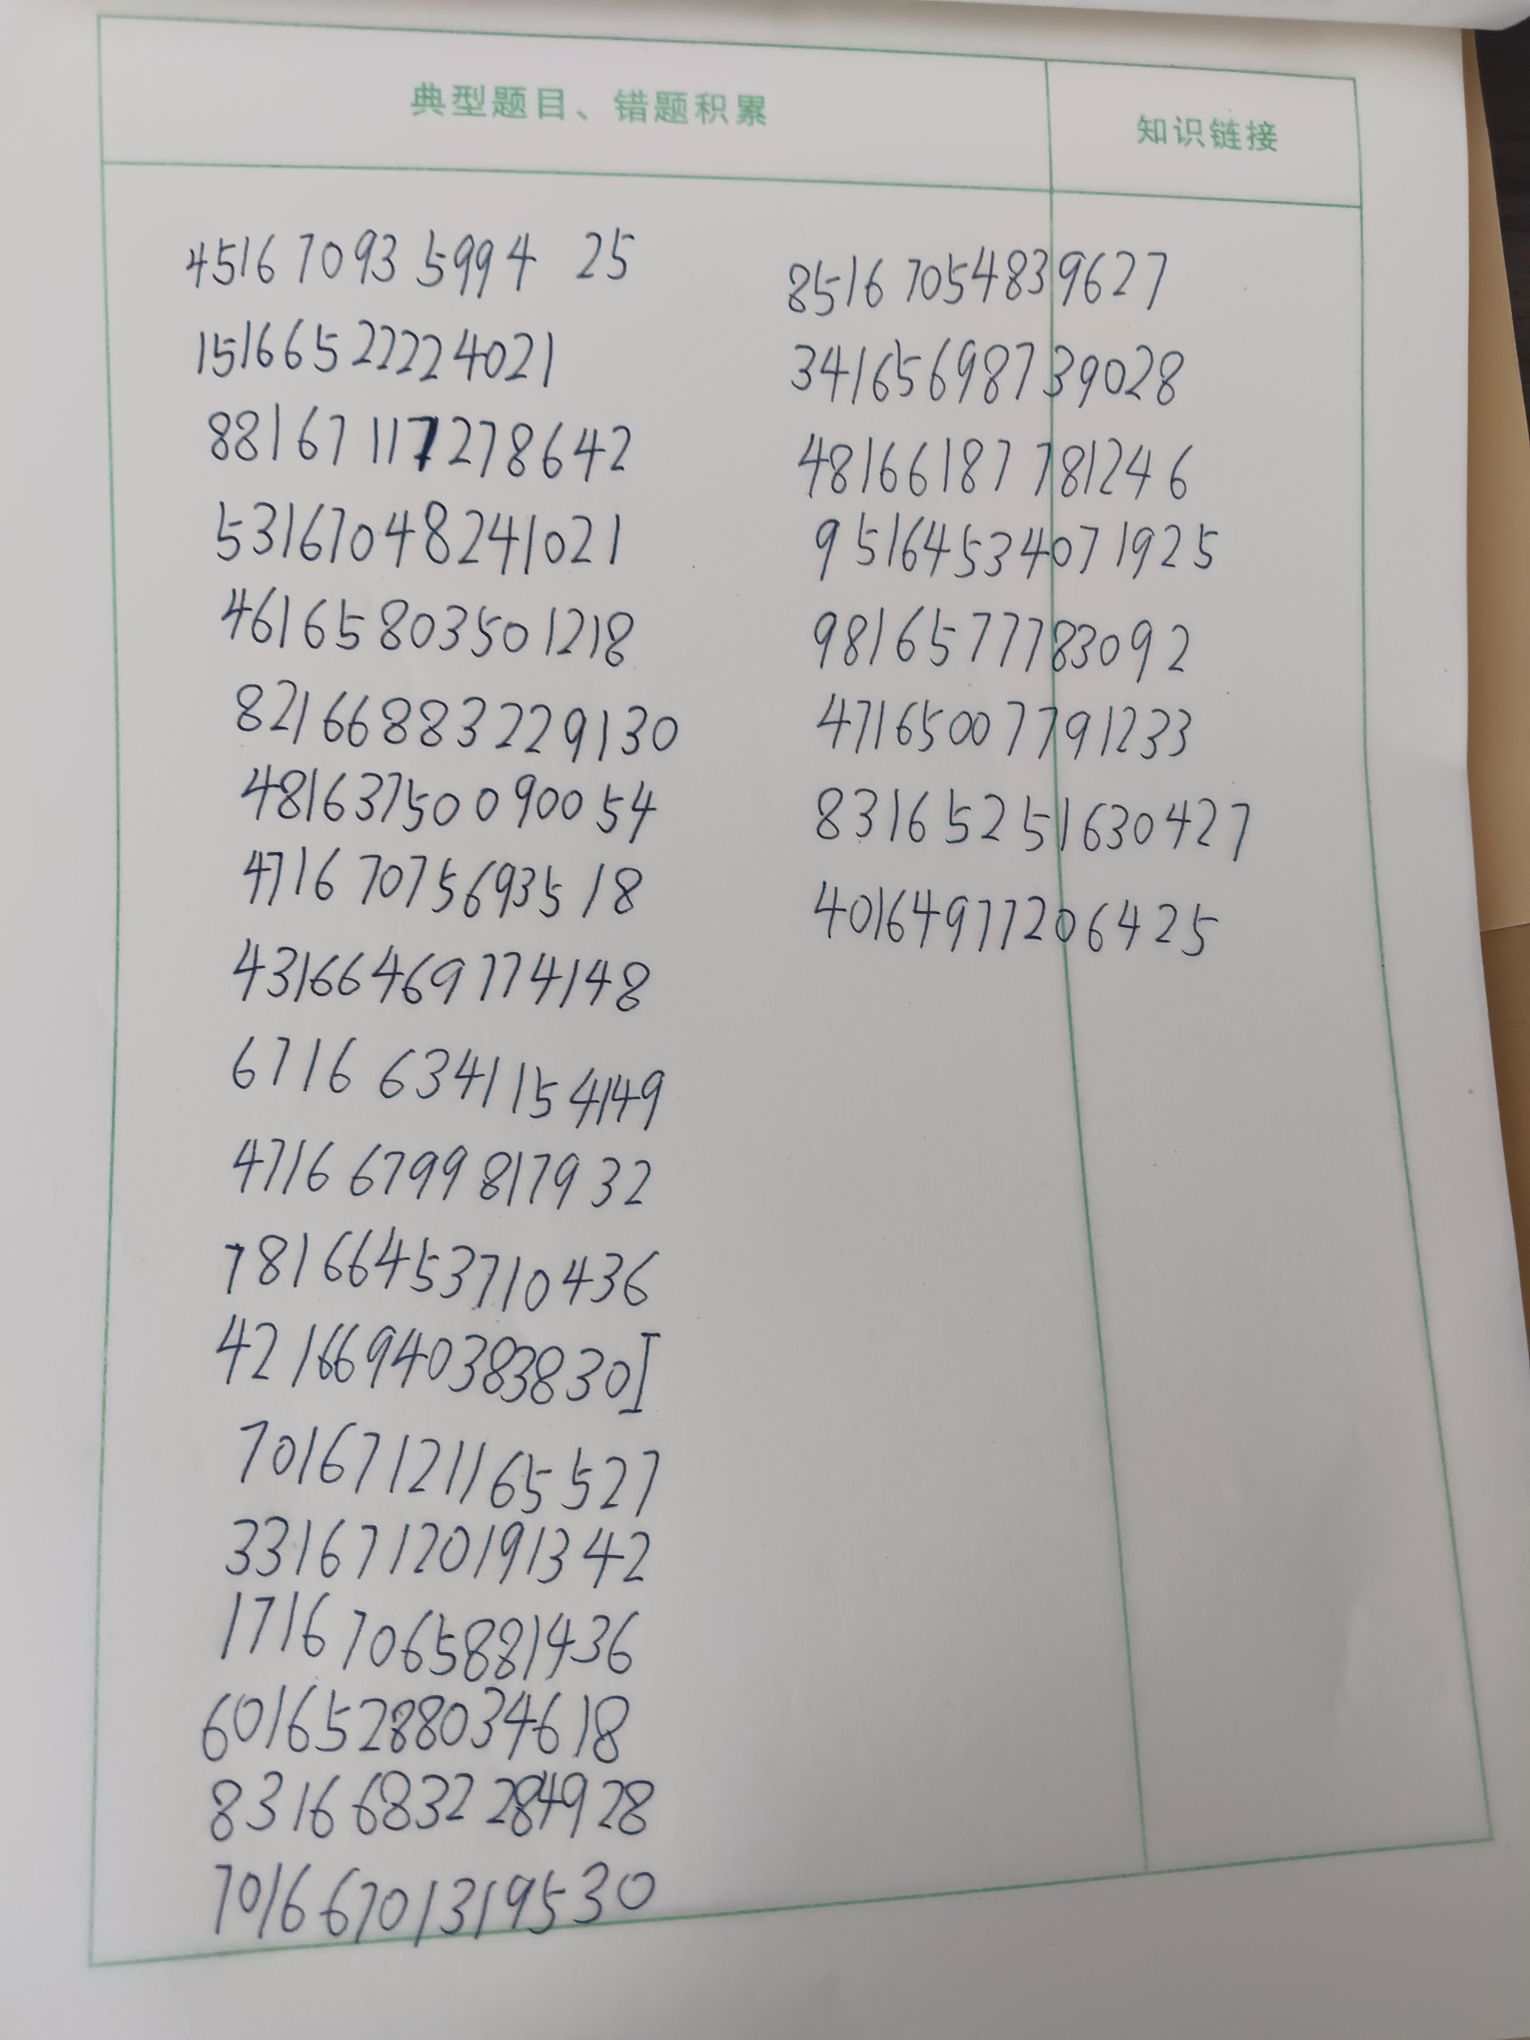 典型题目、错题积累
知识链接
45167093599425
15166522224021
88167117278642
53167048241021
46165803501218
82166883229130
48163750090054
47167075693518
43166469774148
67166341154149
47166799817932
78166453710436
4216694038383 0I
70167121165527
33167120191342
17167065881436
60165288034618
83166832284928
70166701319530
85167054839627
34165698739028
48166187781246
95164534071925
9816577783092
47165007791233
83165251630427
40164977206425